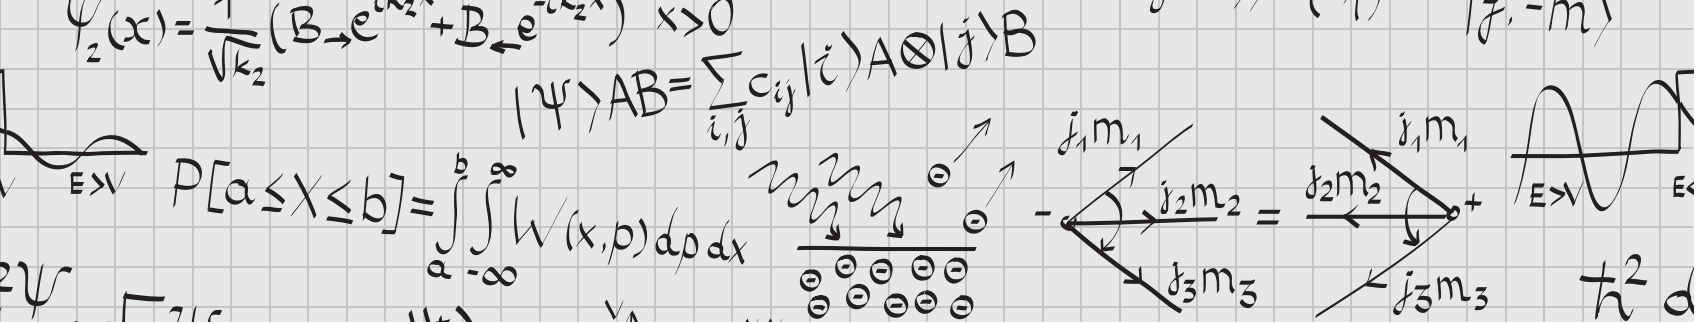 Ψ₂(x) = 1/√k₂ (B→ e^{ik₂x} + B← e^{-ik₂x}) x>0
|Ψ⟩AB = ∑ c_{ij} |i⟩A ⊗ |j⟩B
i,j
E>V
P[a≤X≤b] = ∫_a^b ∫_{-∞}^{∞} W(x,p) dp dx
⊖ ⊖
⊖ ⊖ ⊖ ⊖ ⊖
⊖ ⊖ ⊖ ⊖ ⊖
j₁m₁
- j₂m₂ =
j₃m₃
j₁m₁
j₂m₂ +
j₃m₃
E>V
|j,-m⟩
²Ψ
ħ²